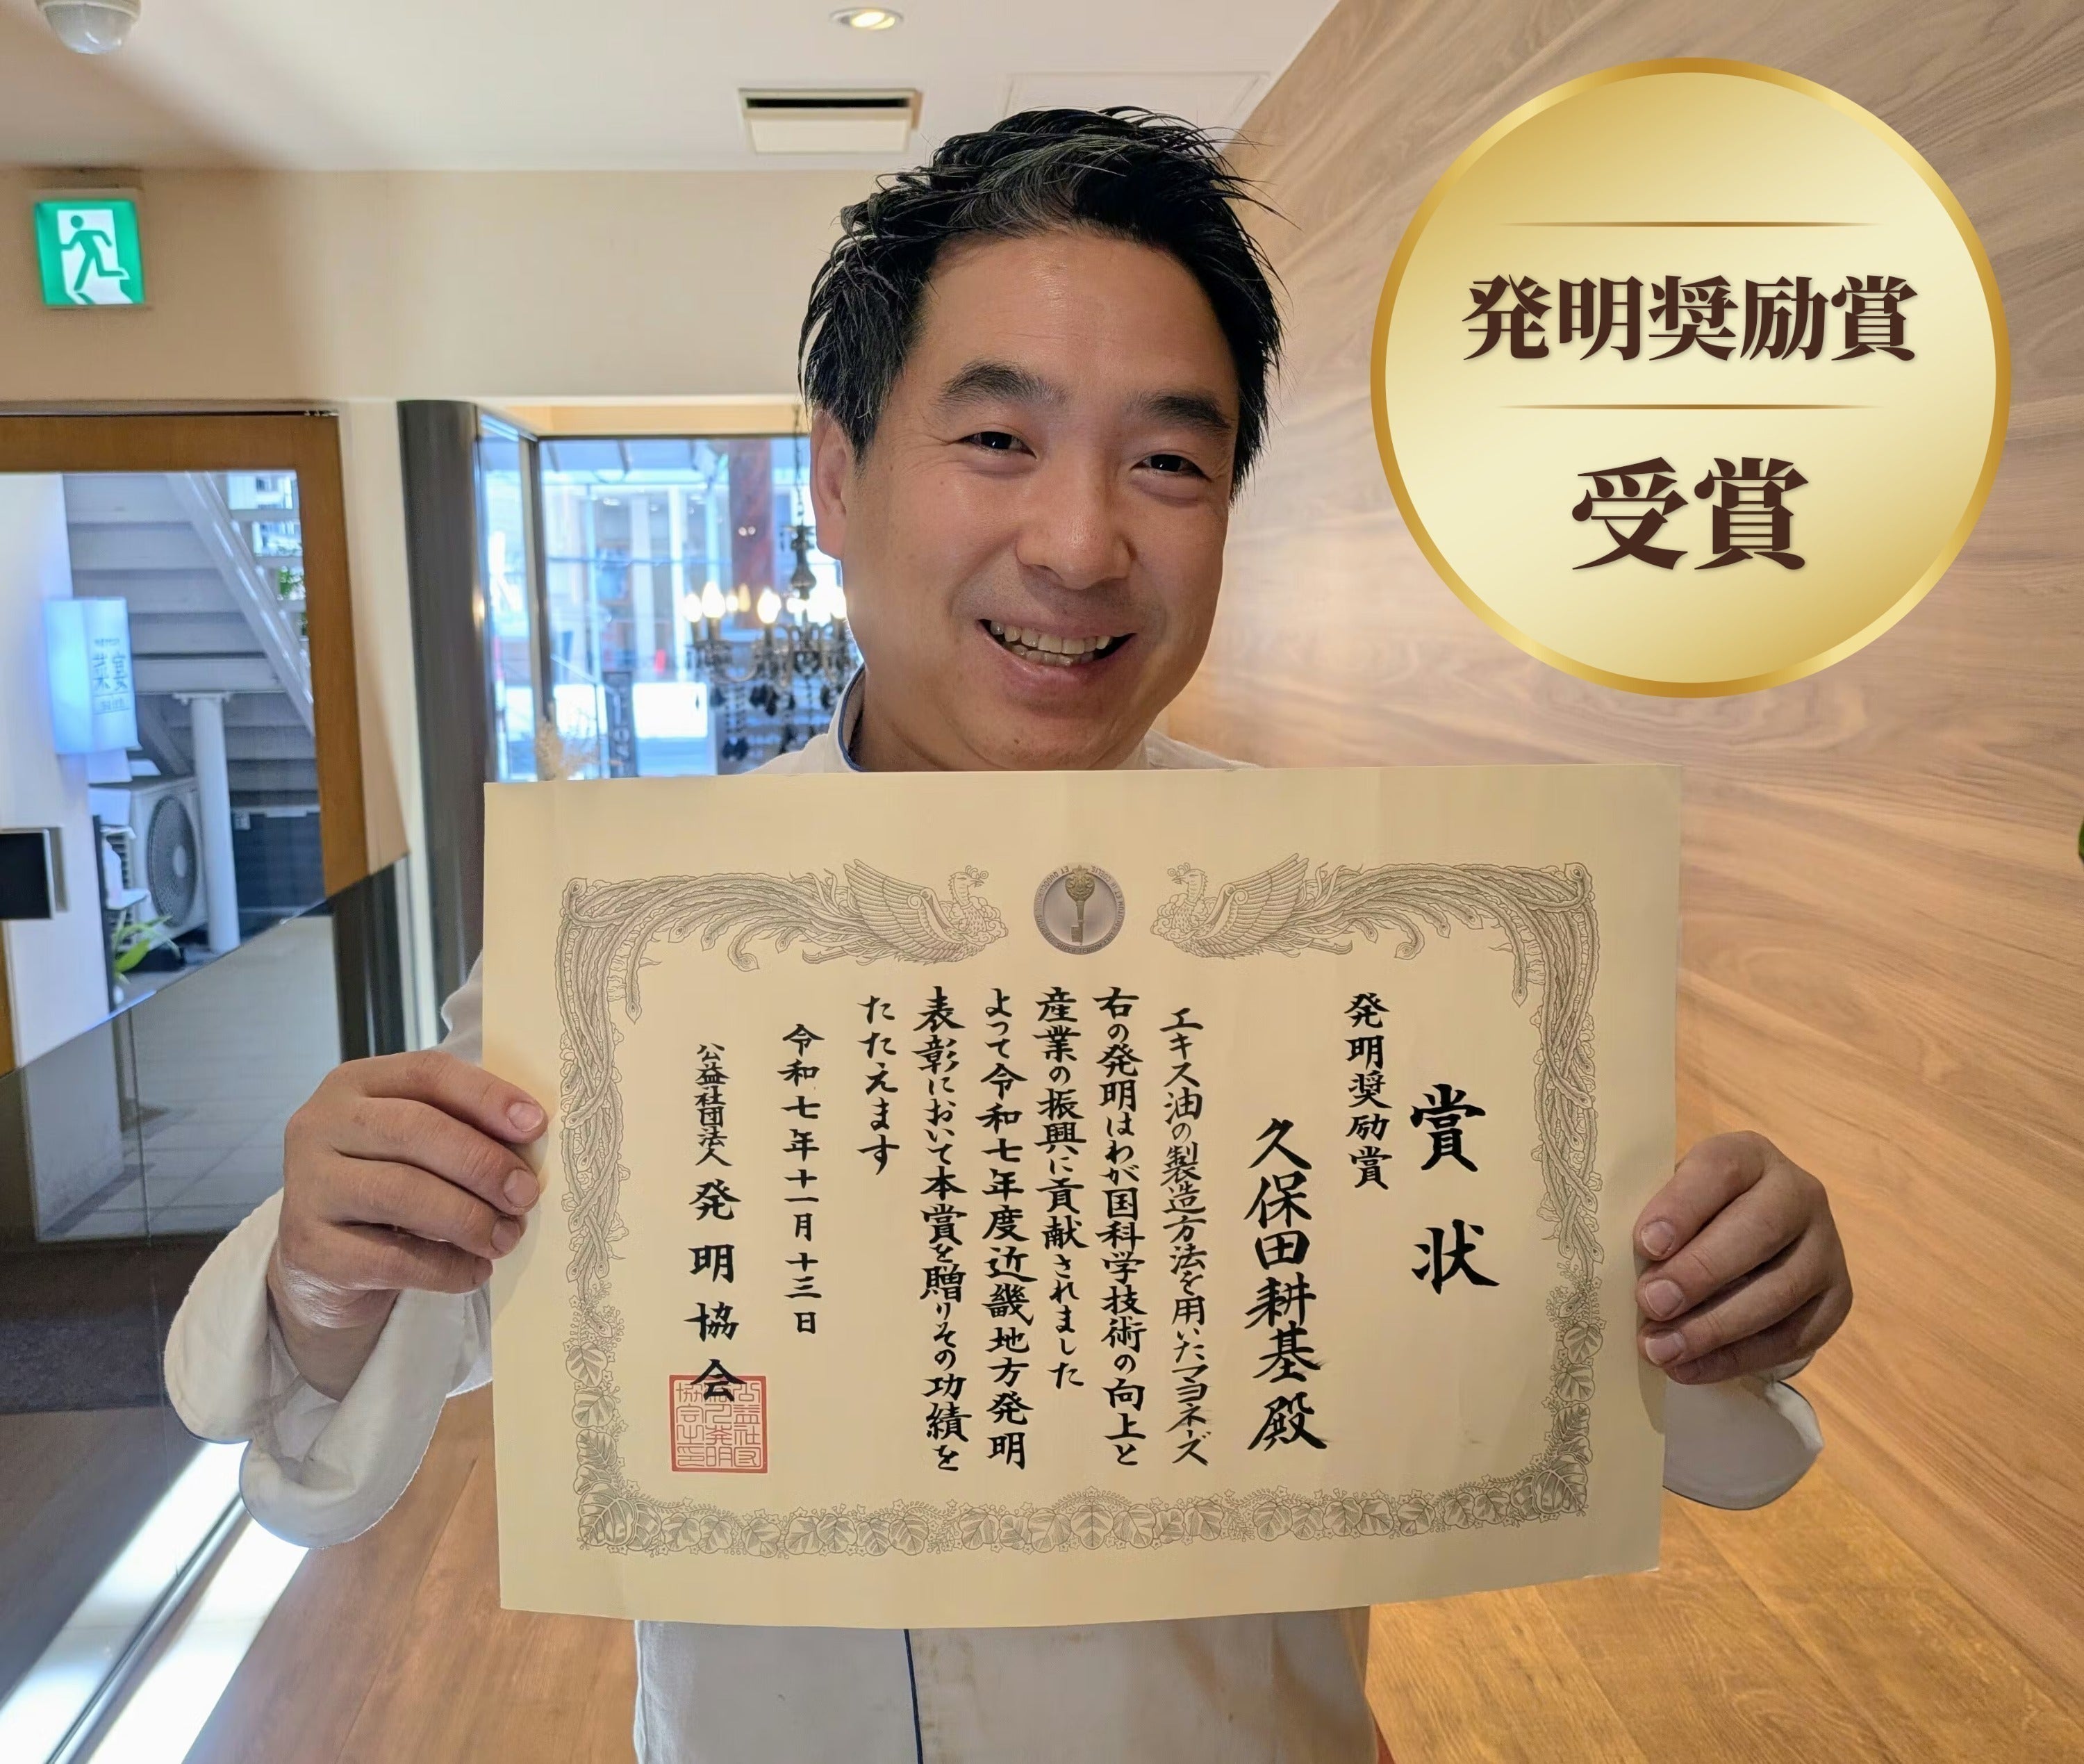 発明奨励賞
受賞
賞状
発明奨励賞
久保田耕基殿
エキス油の製造方法を用いたマヨネーズ
右の発明はわが国科学技術の向上と
産業の振興に貢献されました
よって令和七年度近畿地方発明
表彰において本賞を贈りその功績を
たたえます
令和七年十一月十三日
公益社団法人発明協会